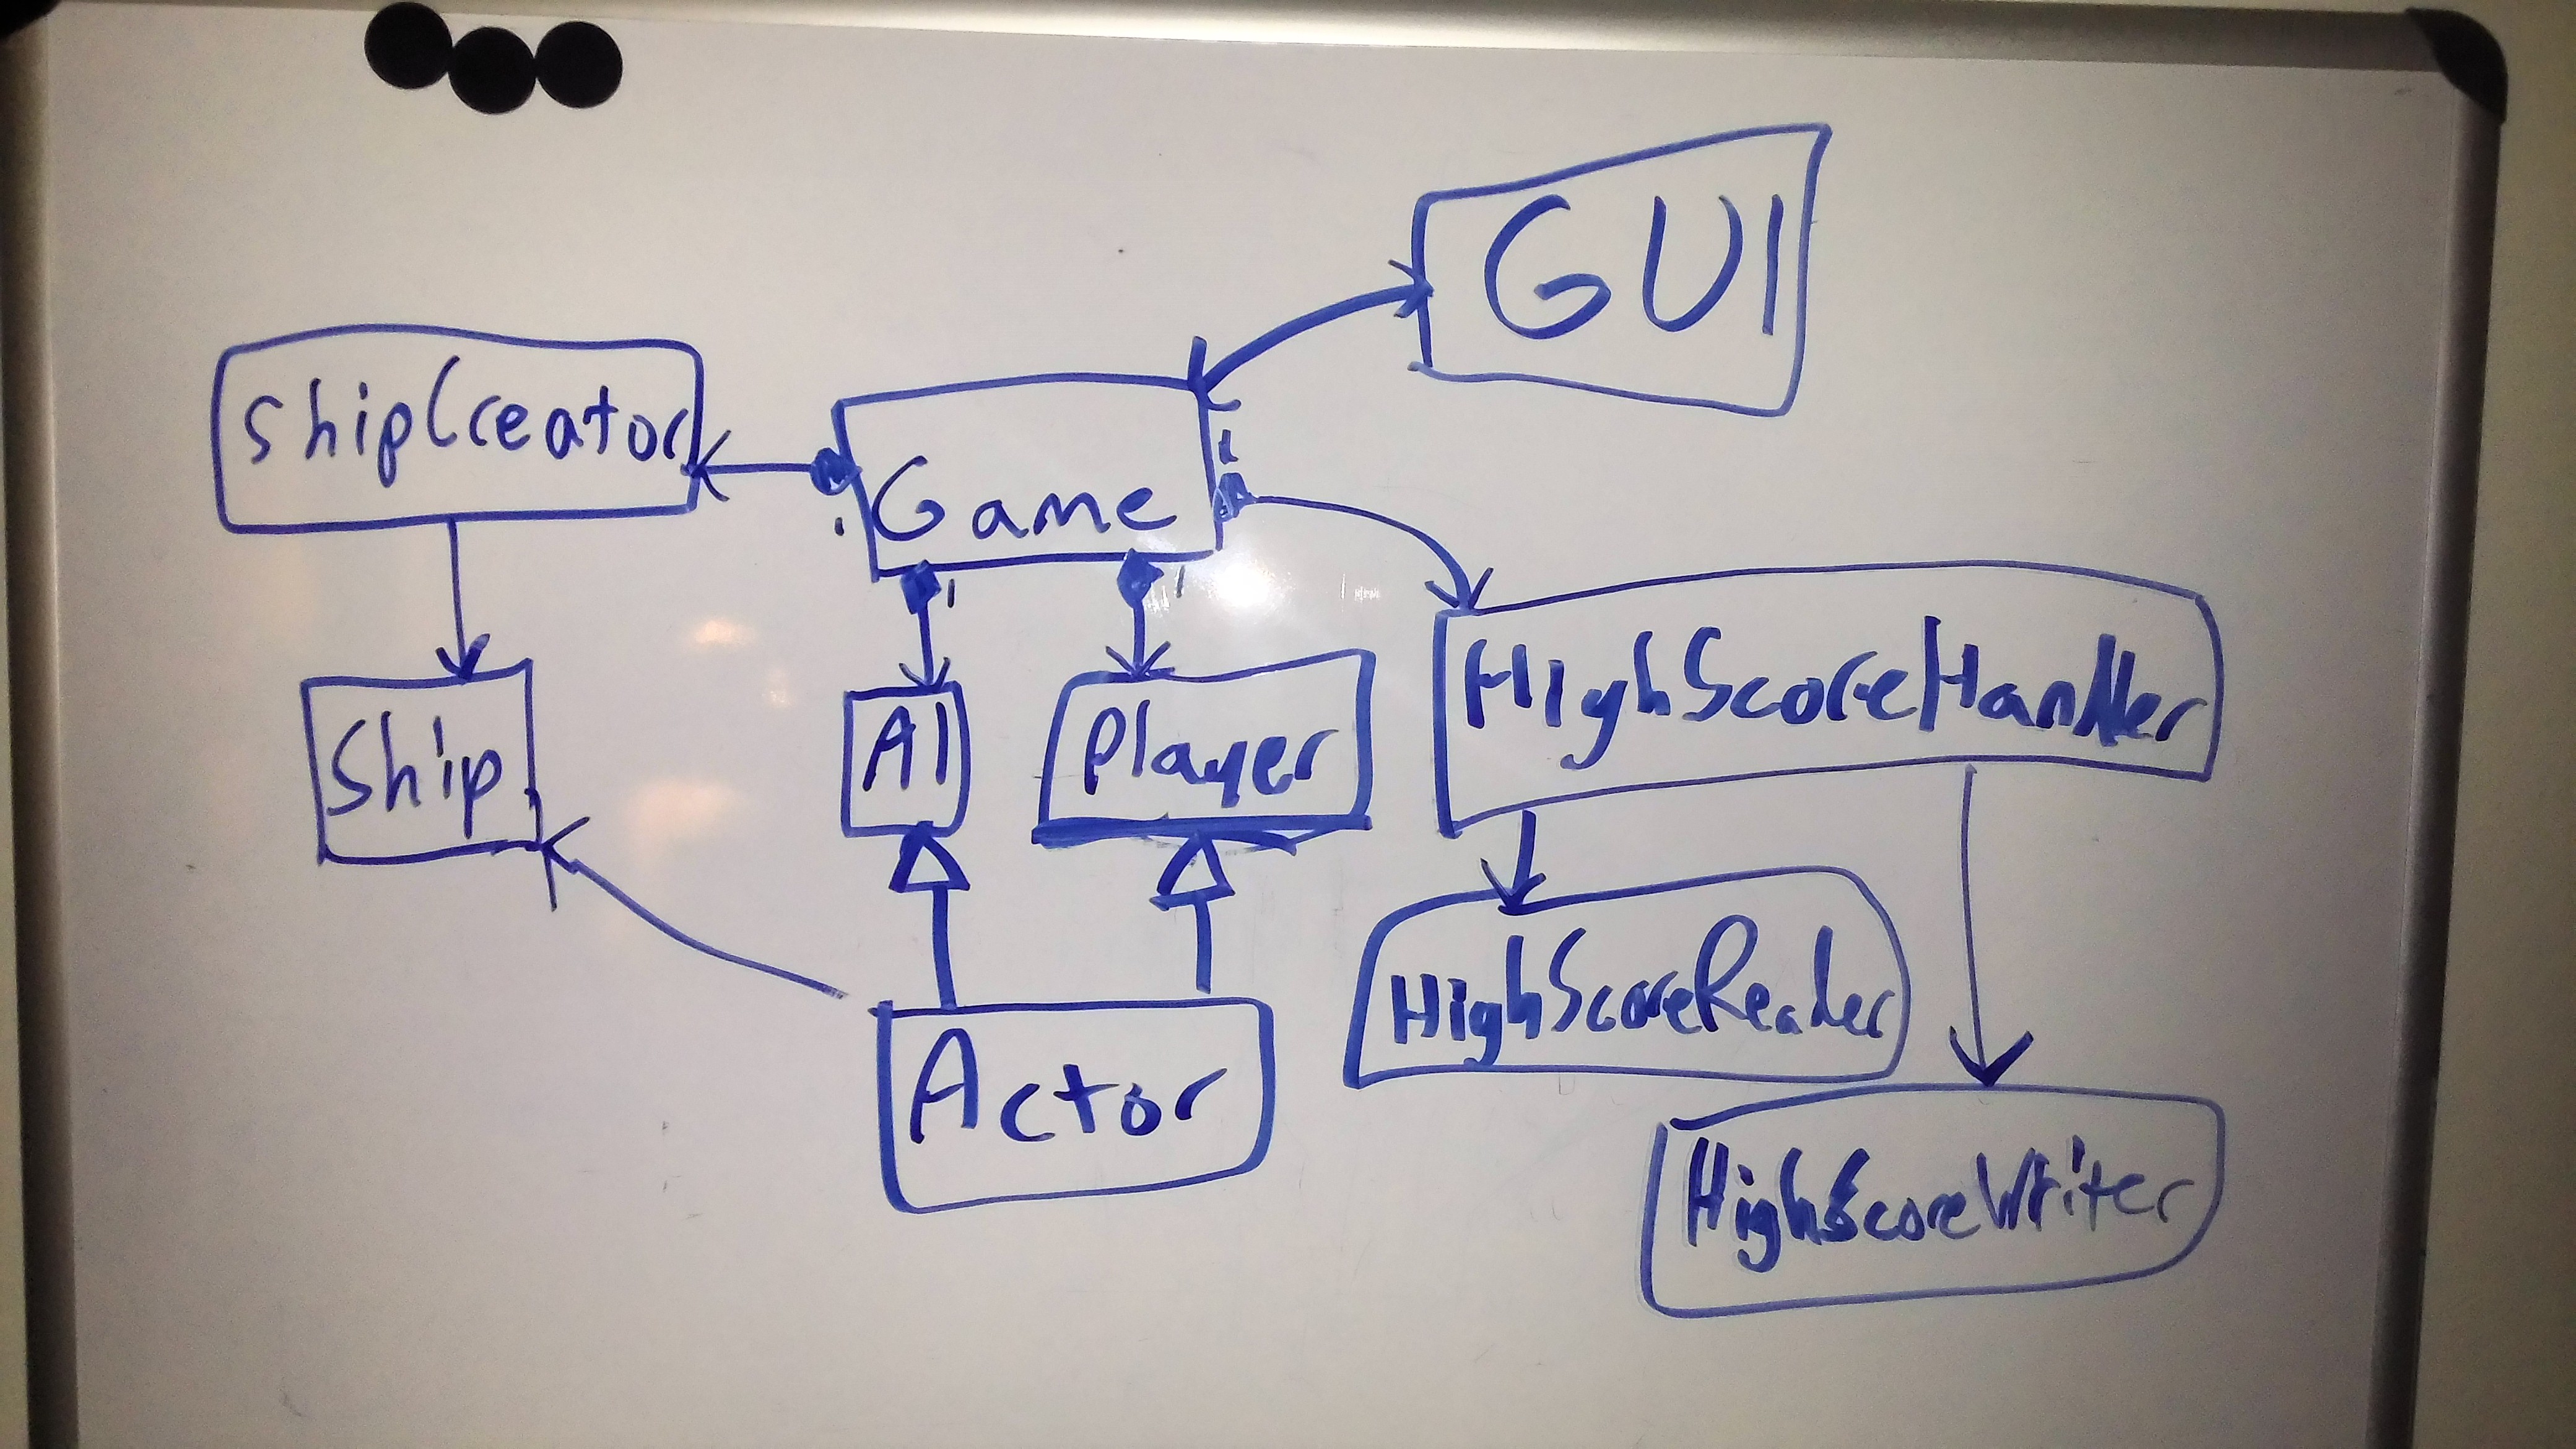 GUI
ShipCreator
Game
1
1
Ship
AI
Player
HighScoreHandler
HighScoreReader
Actor
HighScoreWriter